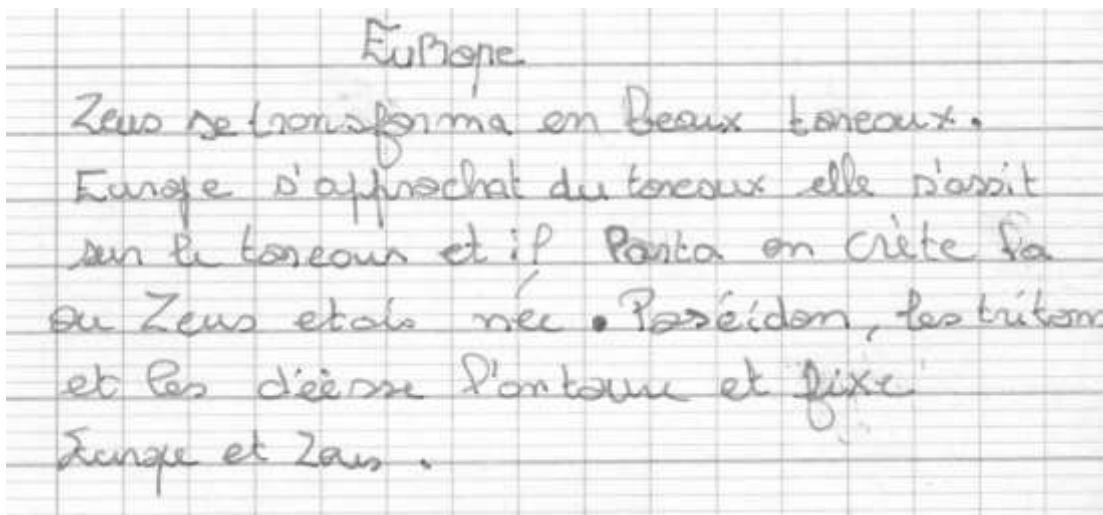 EuRope
Zeus se transforma en beaux toreaux.
Europe s'approchat du toreaux elle s'assit
sur le toreaux et il Parta en Crète la
ou Zeus etais née. Poséidon, les tritons
et les déèsse l'entoure et fixe
Europe et Zeus.